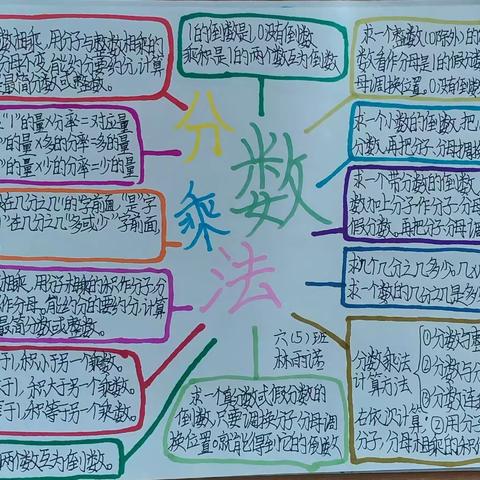 数相乘,用分子与整数相乘的
分母不变,能约分要约分,计算
最简分数或整数。
"1"的量×分率=对应量
的量×多的分率=多的量
的量×少的分率=少的量
在几分之几"的"字前面,"是"字
在几分之几"多或少"字前面,
相乘,用分子相乘的积作分子,分
作分母。能约分的要约分,计算
最简分数或整数。
于1,积小于另一个乘数。
于1,积大于另一个乘数。
于1,积等于另一个乘数。
两个数互为倒数。
1的倒数是1,0没有倒数
乘积是1的两个数互为倒数
分
数
乘
法
六(5)班
求一个真分数或假分数的
倒数,只要调换分子分母调
换位置。就能得到它的倒数
求一个整数(0除外)的
数看作分母是1的假分
母调换位置。0没有倒数
求一个小数的倒数,把
分数,再把分子、分母调换
求一个带分数的倒数
数加上分子作分子,分母
假分数。再把分子、分母调
求几个几分之几多少,几
求一个数的几分之几是多
分数乘法
计算方法
①分数与整
②分数与分
③分数连
右依次计算;②用分子
分子,分母相乘的积作